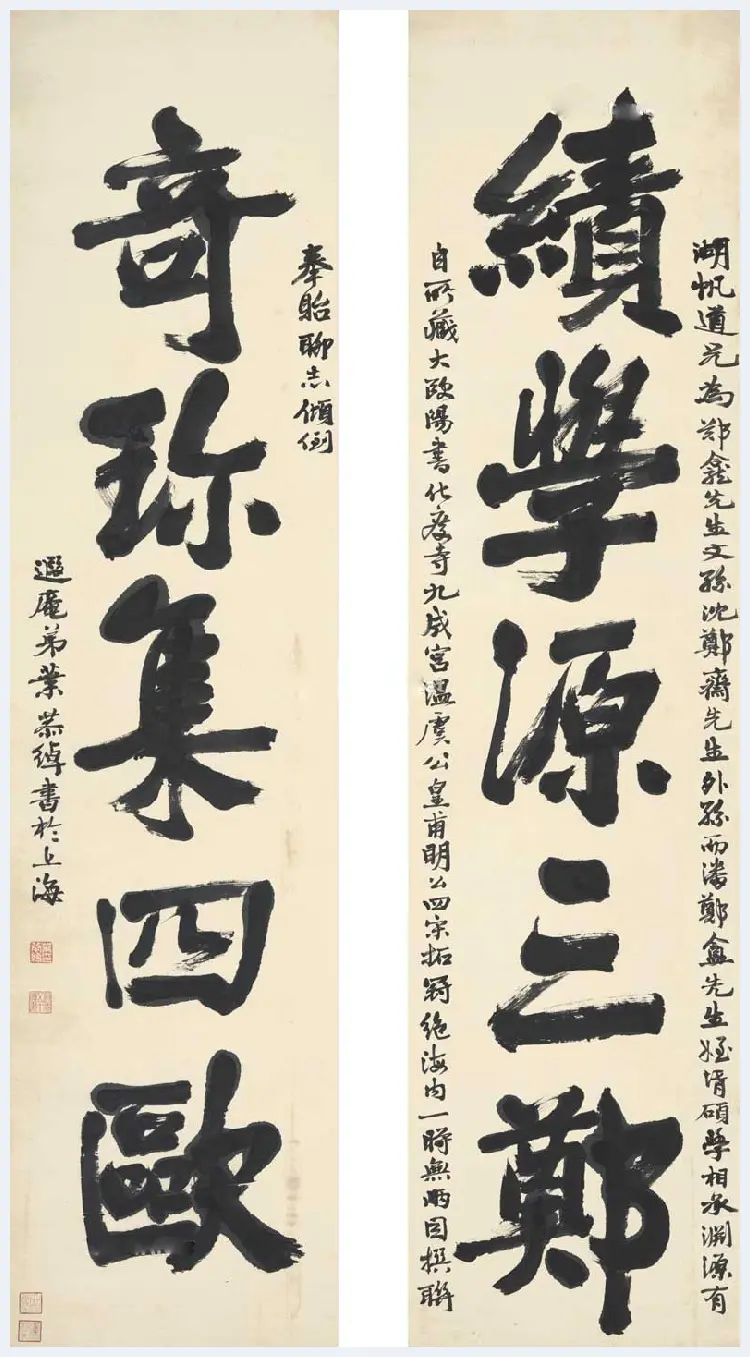 湖帆道兄為郑龕先生文孫沈鄭齋先生外孫而潘鄭盦先生姪壻碩學相承淵源有
績學源三鄭
自所藏大歐陽書化度寺九成宮溫虞公皇甫明公四宋拓冠絕海內一時無兩因撰聯
奉貽聊志傾倒
奇珍集四歐
遐庵弟葉恭綽書於上海